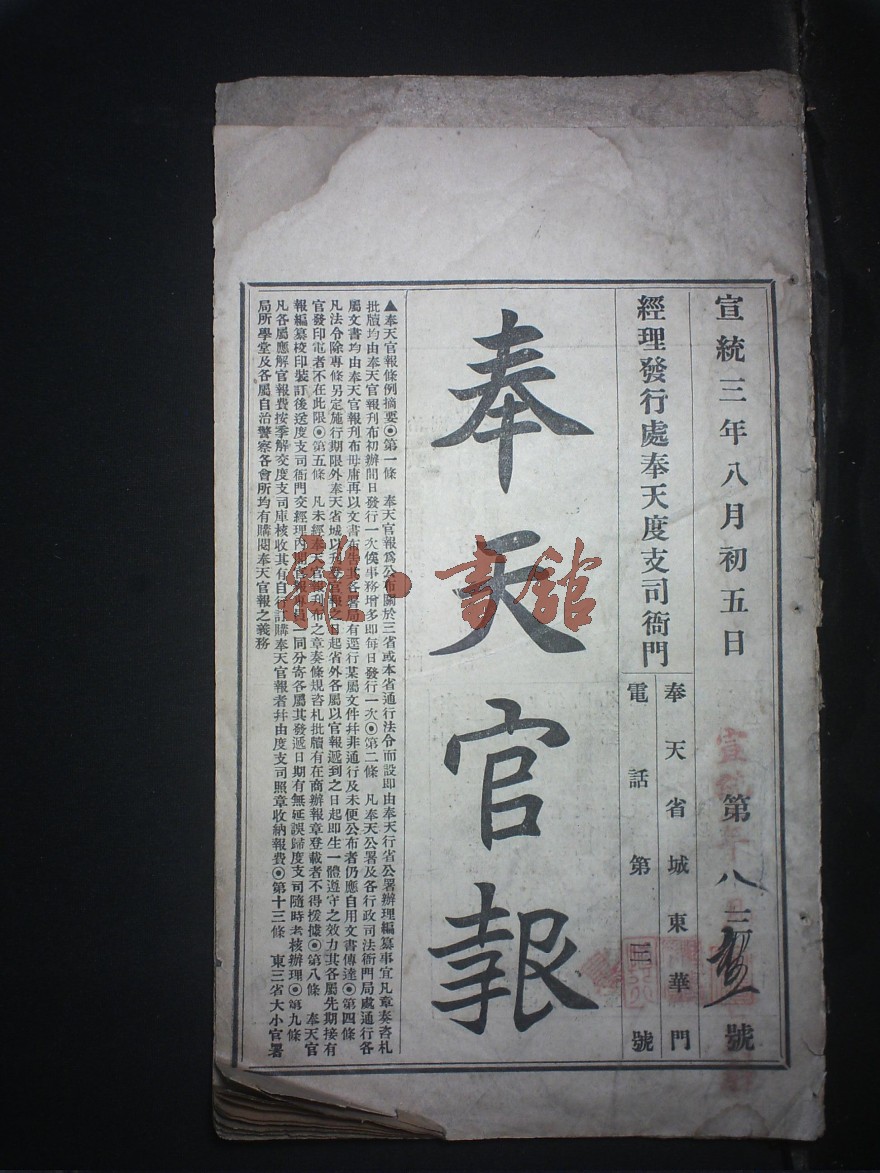 宣統三年八月初五日
第八三號
經理發行處奉天度支司衙門
奉天省城東華門
電話第三號
奉天官報
▲奉天官報條例摘要◉第一條　奉天官報爲公布關於三省或本省通行法令而設即由奉天行省公署辦理編纂事宜凡章奏咨札
批牘均由奉天官報刊布初辦間日發行一次俟事務增多即每日發行一次◉第二條　凡奉天公署及各行政司法衙門局處通行各
屬文書均由奉天官報刊布毋庸再以文書布告其各署局有逕行某屬文件幷非通行及未便公布者仍應自用文書傳達◉第四條
凡法令除專條另定施行期限外奉天省城以刊登官報之日起省外各屬以官報遞到之日起即生一體遵守之效力其各屬先期接有
官發印電者不在此限◉第五條　凡未經奉天官報刊布之章奏條規咨札批牘有在商辦報章登載者不得援據◉第八條　奉天官
報編纂校印裝訂後送度支司衙門交經理內閣官報專員一同分寄各屬其發遞日期有無延誤歸度支司隨時考核辦理◉第九條
凡各屬應解官報費按季解交度支司庫核收其有自行訂購奉天官報者幷由度支司照章收納報費◉第十三條　東三省大小官署
局所學堂及各屬自治警察各會所均有購閱奉天官報之義務
雜·書館